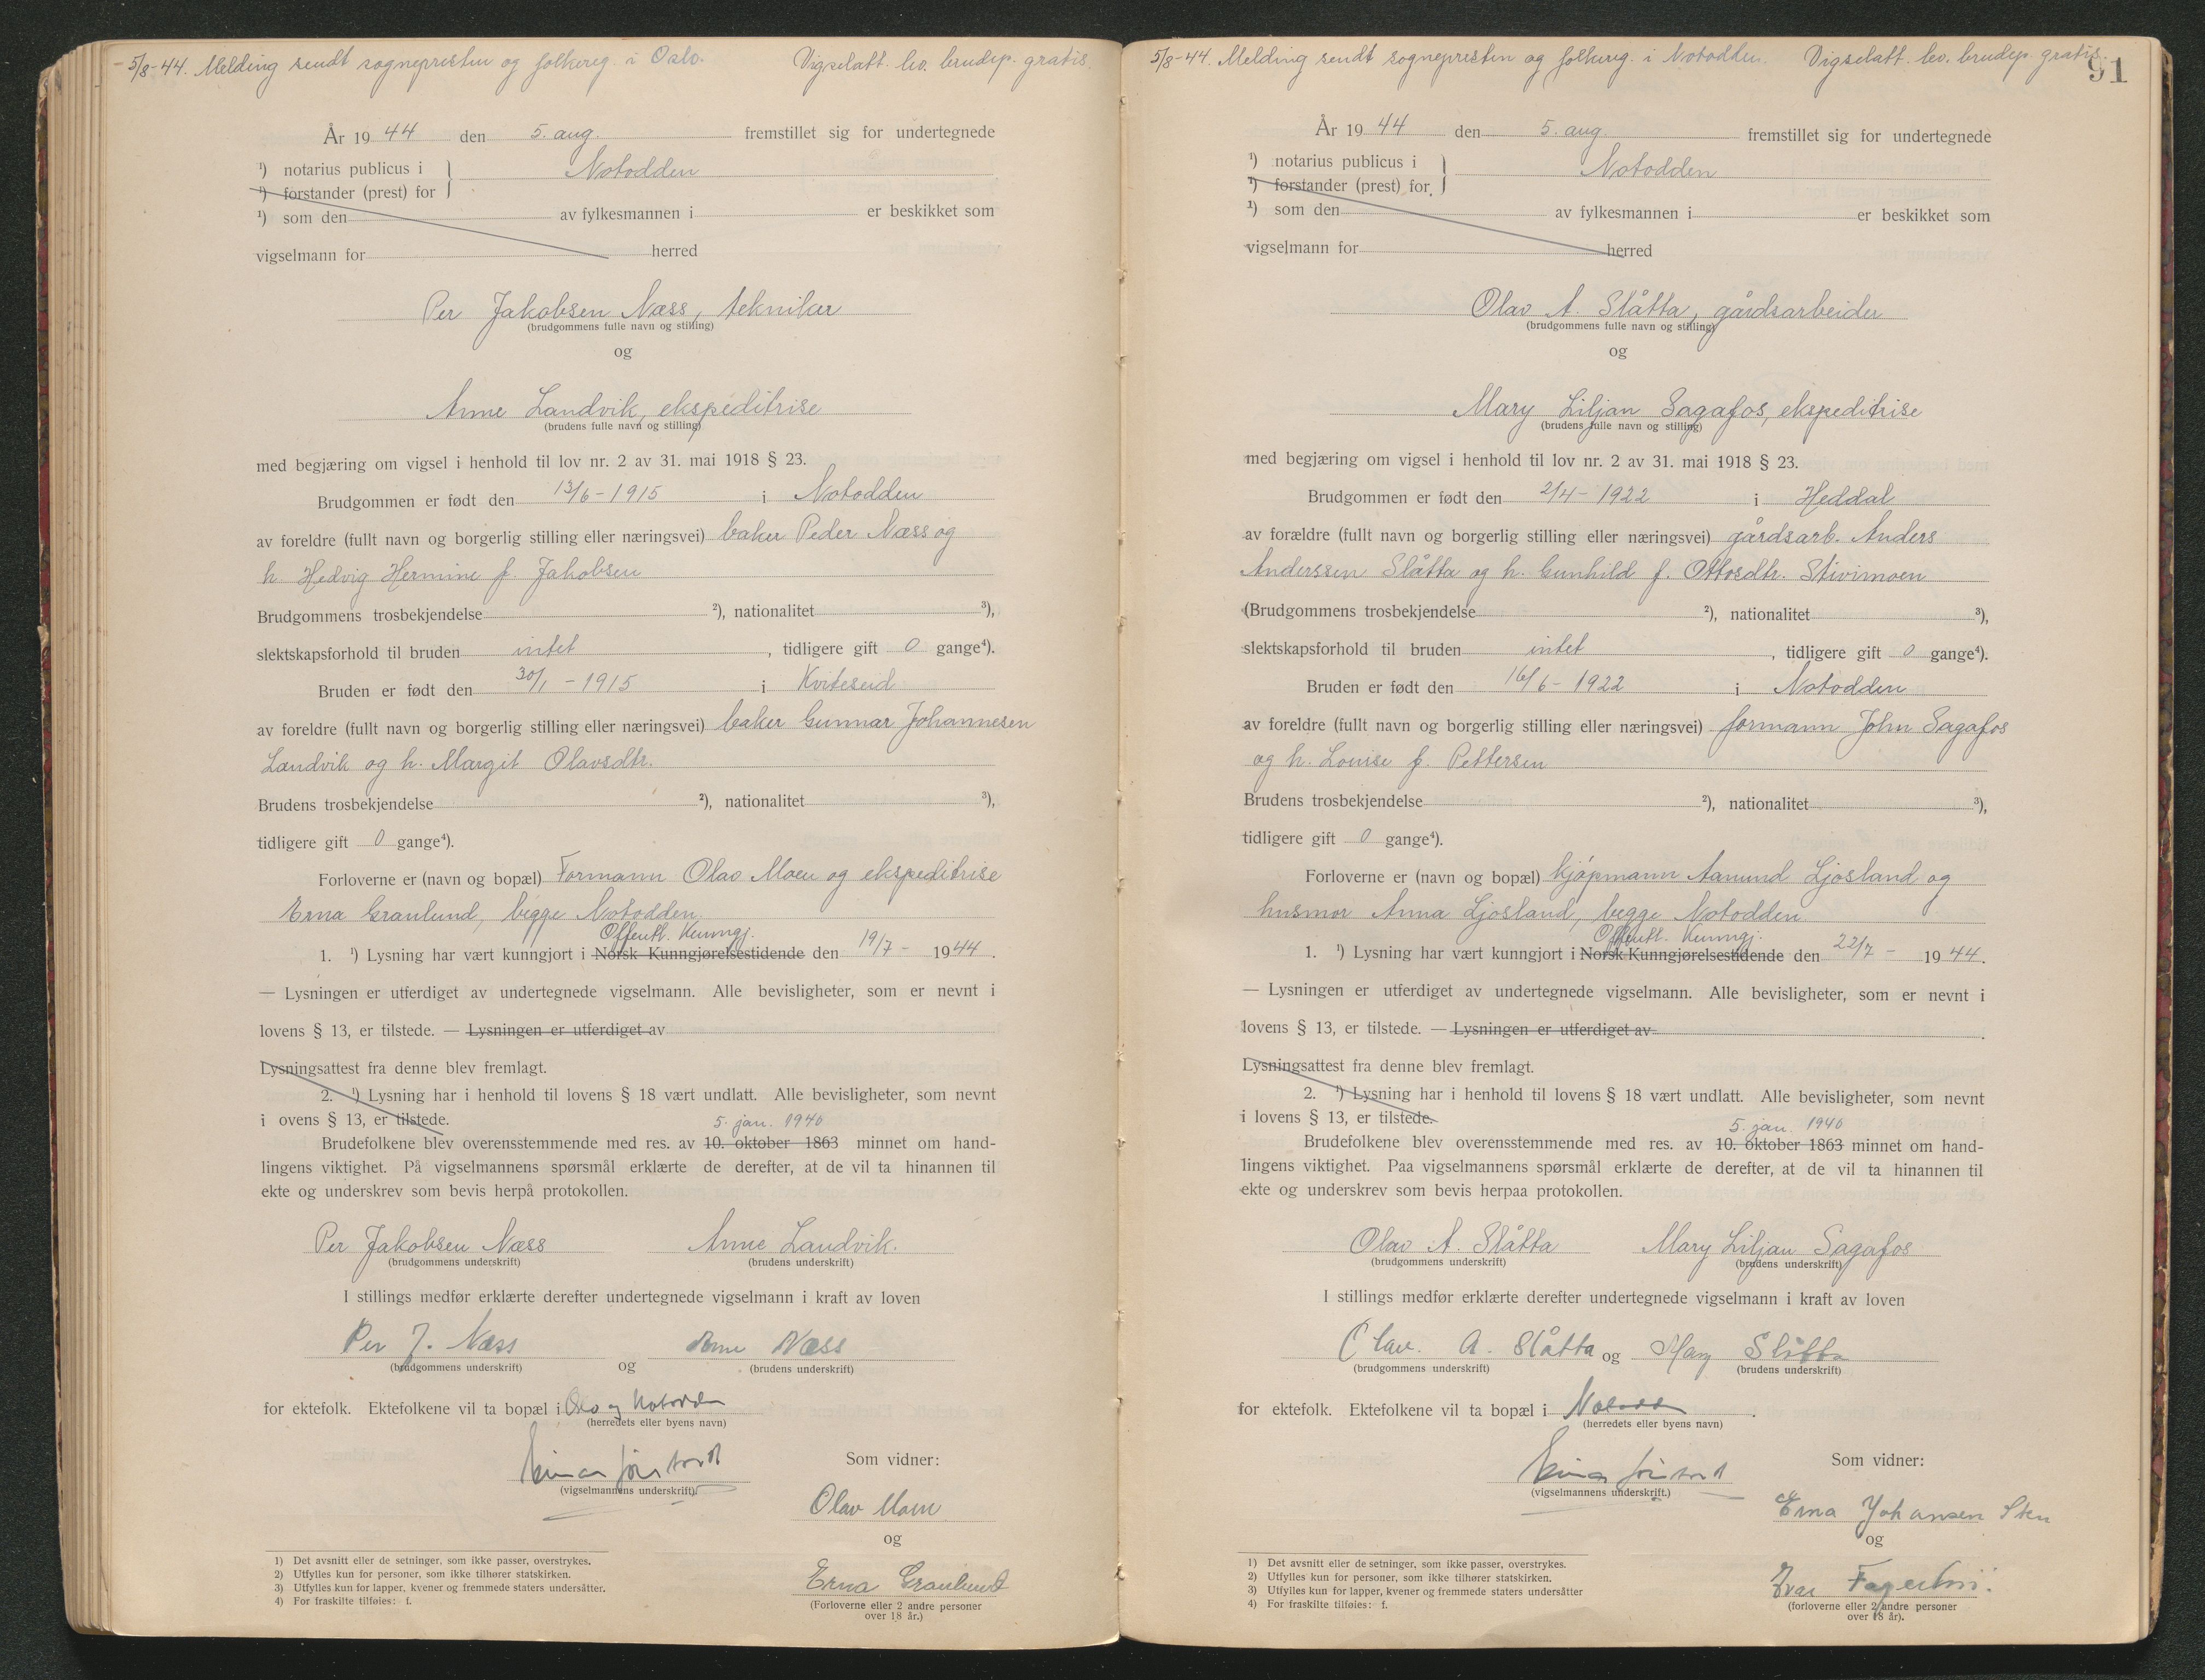 5/8-44. Melding sendt sognepresten og folkereg. i Oslo. Vigselatt. lev. brudep. gratis.
År 19 44 den 5. aug. fremstillet sig for undertegnede
¹) notarius publicus i } Notodden
¹) forstander (prest) for
¹) som den av fylkesmannen i er beskikket som
vigselmann for herred
Per Jakobsen Næss, tekniker
(brudgommens fulle navn og stilling)
og
Anne Landvik, ekspeditrise
(brudens fulle navn og stilling)
med begjæring om vigsel i henhold til lov nr. 2 av 31. mai 1918 § 23.
Brudgommen er født den 13/6 - 1915 i Notodden
av foreldre (fullt navn og borgerlig stilling eller næringsvei) baker Peder Næss og
h. Hedvig Hermine f. Jakobsen
Brudgommens trosbekjendelse ²), nationalitet ³),
slektskapsforhold til bruden intet, tidligere gift 0 gange⁴).
Bruden er født den 30/1 - 1915 i Kviteseid
av foreldre (fullt navn og borgerlig stilling eller næringsvei) baker Gunnar Johannesen
Landvik og h. Margit Olavsdtr.
Brudens trosbekjendelse ²), nationalitet ³),
tidligere gift 0 gange⁴).
Forloverne er (navn og bopæl) Formann Olav Moen og ekspeditrise
Erna Granlund, begge Notodden.
Offentl. Kunngj.
1. ¹) Lysning har vært kunngjort i Norsk Kunngjørelsestidende den 19/7 - 1944.
— Lysningen er utferdiget av undertegnede vigselmann. Alle bevisligheter, som er nevnt i
lovens § 13, er tilstede. — Lysningen er utferdiget av
Lysningsattest fra denne blev fremlagt.
2. ¹) Lysning har i henhold til lovens § 18 vært undlatt. Alle bevisligheter, som nevnt
i ovens § 13, er tilstede. 5. jan. 1940
Brudefolkene blev overensstemmende med res. av 10. oktober 1863 minnet om hand-
lingens viktighet. På vigselmannens spørsmål erklærte de derefter, at de vil ta hinannen til
ekte og underskrev som bevis herpå protokollen.
Per Jakobsen Næss Anne Landvik.
(brudgommens underskrift) (brudens underskrift)
I stillings medfør erklærte derefter undertegnede vigselmann i kraft av loven
Per J. Næss og Anne Næss
(brudgommens underskrift) (brudens underskrift)
for ektefolk. Ektefolkene vil ta bopæl i Oslo og Notodden
(herredets eller byens navn)
Som vidner:
(vigselmannens underskrift)
Olav Moen
og
Erna Granlund
(Forloverne eller 2 andre personer
over 18 år.)
1) Det avsnitt eller de setninger, som ikke passer, overstrykes.
2) Utfylles kun for personer, som ikke tilhører statskirken.
3) Utfylles kun for lapper, kvener og fremmede staters undersåtter.
4) For fraskilte tilføies: f.
5/8-44. Melding sendt sognepresten og folkereg. i Notodden. Vigselatt. lev. brudep. gratis.
91
År 19 44 den 5. aug. fremstillet sig for undertegnede
¹) notarius publicus i } Notodden
¹) forstander (prest) for
¹) som den av fylkesmannen i er beskikket som
vigselmann for herred
Olav A. Slåtta, gårdsarbeider
(brudgommens fulle navn og stilling)
og
Mary Liljan Sagafos, ekspeditrise
(brudens fulle navn og stilling)
med begjæring om vigsel i henhold til lov nr. 2 av 31. mai 1918 § 23.
Brudgommen er født den 2/4 - 1922 i Heddal
av forældre (fullt navn og borgerlig stilling eller næringsvei) gårdsarb. Anders
Anderssen Slåtta og h. Gunhild f. Ottosdtr. Stivimoen
(Brudgommens trosbekjendelse ²), nationalitet ³),
slektskapsforhold til bruden intet, tidligere gift 0 gange⁴).
Bruden er født den 16/6 - 1922 i Notodden
av foreldre (fullt navn og borgerlig stilling eller næringsvei) formann John Sagafos
og h. Louise f. Pettersen
Brudens trosbekjendelse ²), nationalitet ³),
tidligere gift 0 gange⁴).
Forloverne er (navn og bopæl) kjøpmann Aanund Ljosland og
husmor Anna Ljosland, begge Notodden
Offentl. Kunngj.
1. ¹) Lysning har vært kunngjort i Norsk Kunngjørelsestidende den 22/7 - 1944.
— Lysningen er utferdiget av undertegnede vigselmann. Alle bevisligheter, som er nevnt i
lovens § 13, er tilstede. — Lysningen er utferdiget av .
Lysningsattest fra denne blev fremlagt.
2. ¹) Lysning har i henhold til lovens § 18 vært undlatt. Alle bevisligheter, som nevnt
i lovens § 13, er tilstede. 5. jan. 1940
Brudefolkene blev overensstemmende med res. av 10. oktober 1863 minnet om hand-
lingens viktighet. Paa vigselmannens spørsmål erklærte de derefter, at de vil ta hinannen til
ekte og underskrev som bevis herpaa protokollen.
Olav A. Slåtta Mary Liljan Sagafos
(brudgommens underskrift) (brudens underskrift)
I stillings medfør erklærte derefter undertegnede vigselmann i kraft av loven
Olav. A. Slåtta og Mary Slåtta
(brudgommens underskrift) (brudens underskrift)
for ektefolk. Ektefolkene vil ta bopæl i Notodden.
(herredets eller byens navn)
Som vidner:
(vigselmannens underskrift.)
Erna Johansen Sten
og
Ivar
(forloverne eller 2 andre personer
over 18 år).
1) Det avsnitt eller de setninger, som ikke passer, overstrykes.
2) Utfylles kun for personer, som ikke tilhører statskirken.
3) Utfylles kun for lapper, kvener og fremmede staters undersåtter
4) For fraskilte tilføies: f.